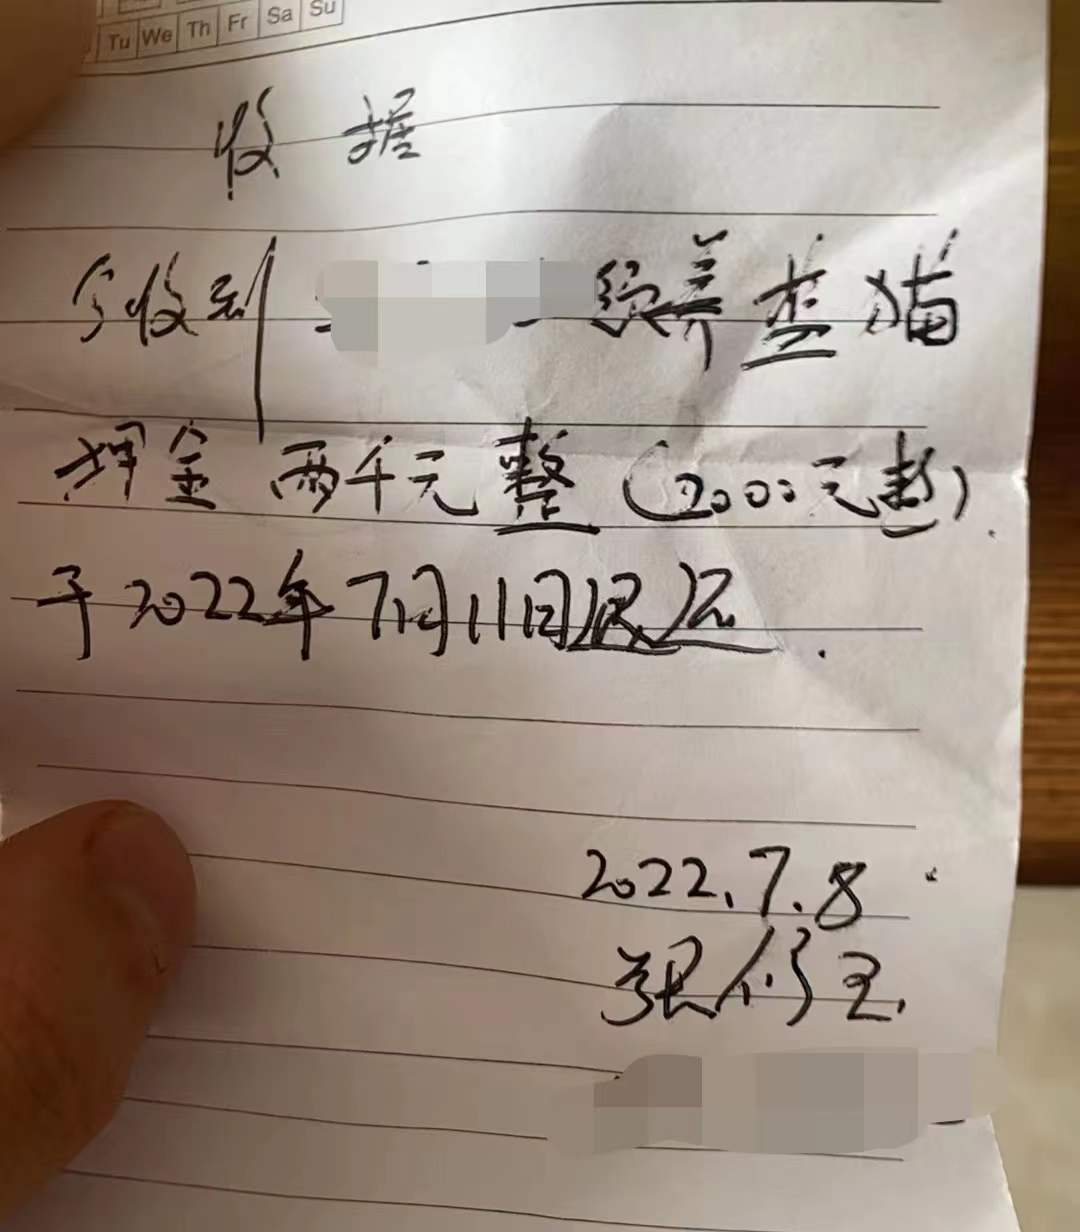 Tu We Th Fr Sa Su
收据
今收到 领养 猫
押金 两千元整(2000元整).
于2022年7月11日退还.
2022.7.8
张